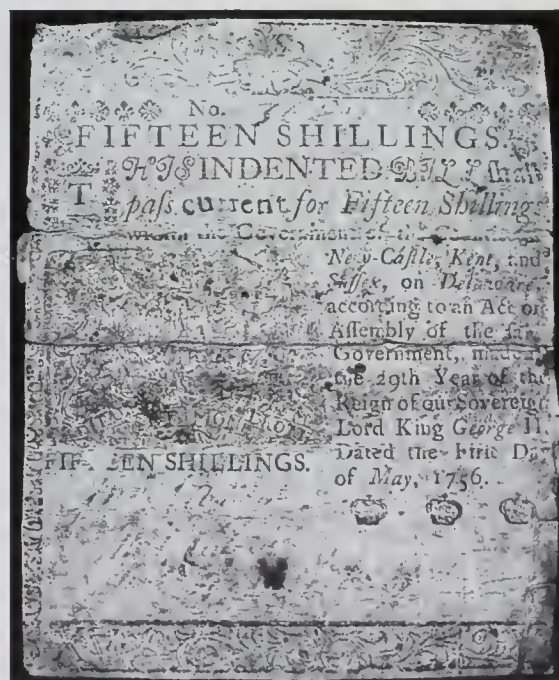 No.
FIFTEEN SHILLINGS.
THIS INDENTED BILL ſhall
paſs current for Fifteen Shillings
within the Government of the Counties
New-Caſtle, Kent, and
Suſſex, on Delaware,
according to an Act of
Aſſembly of the ſaid
Government, made in
the 29th Year of the
Reign of our Sovereign
Lord King George II.
Dated the Firſt Day
of May, 1756.
FIFTEEN SHILLINGS.